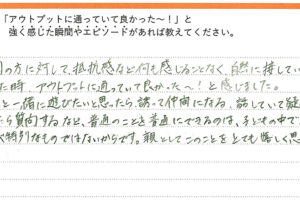 「アウトプットに通っていて良かった〜！」と
強く感じた瞬間やエピソードがあれば教えてください。
の方に対して、抵抗感など何も感じることなく、自然に接してい
た時、アウトプットに通っていて良かった〜！と感じました。
と一緒に遊びたいと思ったら誘って仲間になる、話していて疑
たら質問するなど、普通のことを普通にできるのは、子どもの中で
特別なものではないからです。親としてこのことをとても嬉しく思